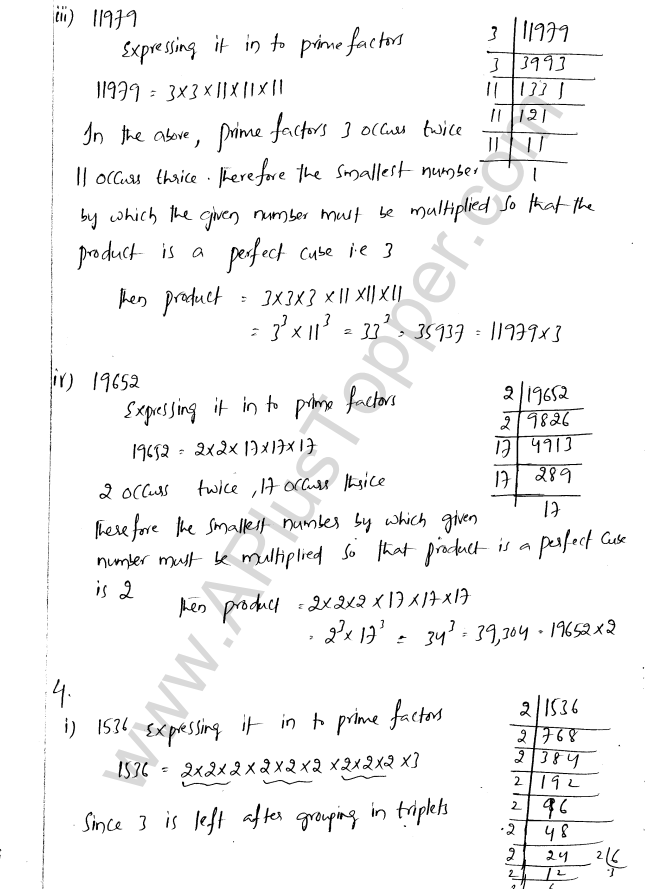 iii) 11979
Expressing it in to prime factors
3 | 11979
3 | 3993
11 | 1331
11 | 121
11 | 11
1
11979 = 3×3×11×11×11
In the above, prime factors 3 occurs twice
11 occurs thrice. Therefore the smallest number
by which the given number must be multiplied so that the
product is a perfect cube i.e 3
Then product = 3×3×3 ×11×11×11
= 3³ × 11³ = 33³ = 35937 = 11979×3
iv) 19652
Expressing it in to prime factors
2 | 19652
2 | 9826
17 | 4913
17 | 289
17
19652 = 2×2×17×17×17
2 occurs twice, 17 occurs thrice
Therefore the smallest number by which given
number must be multiplied so that product is a perfect cube
is 2
Then product = 2×2×2 ×17×17×17
= 2³× 17³ = 34³ = 39,304 = 19652×2
4.
i) 1536 Expressing it in to prime factors
1536 = 2×2×2 × 2×2×2 × 2×2×2 ×3
Since 3 is left after grouping in triplets
2 | 1536
2 | 768
2 | 384
2 | 192
2 | 96
2 | 48
2 | 24
2 | 12
2 | 6
3
www.APlusTopper.com